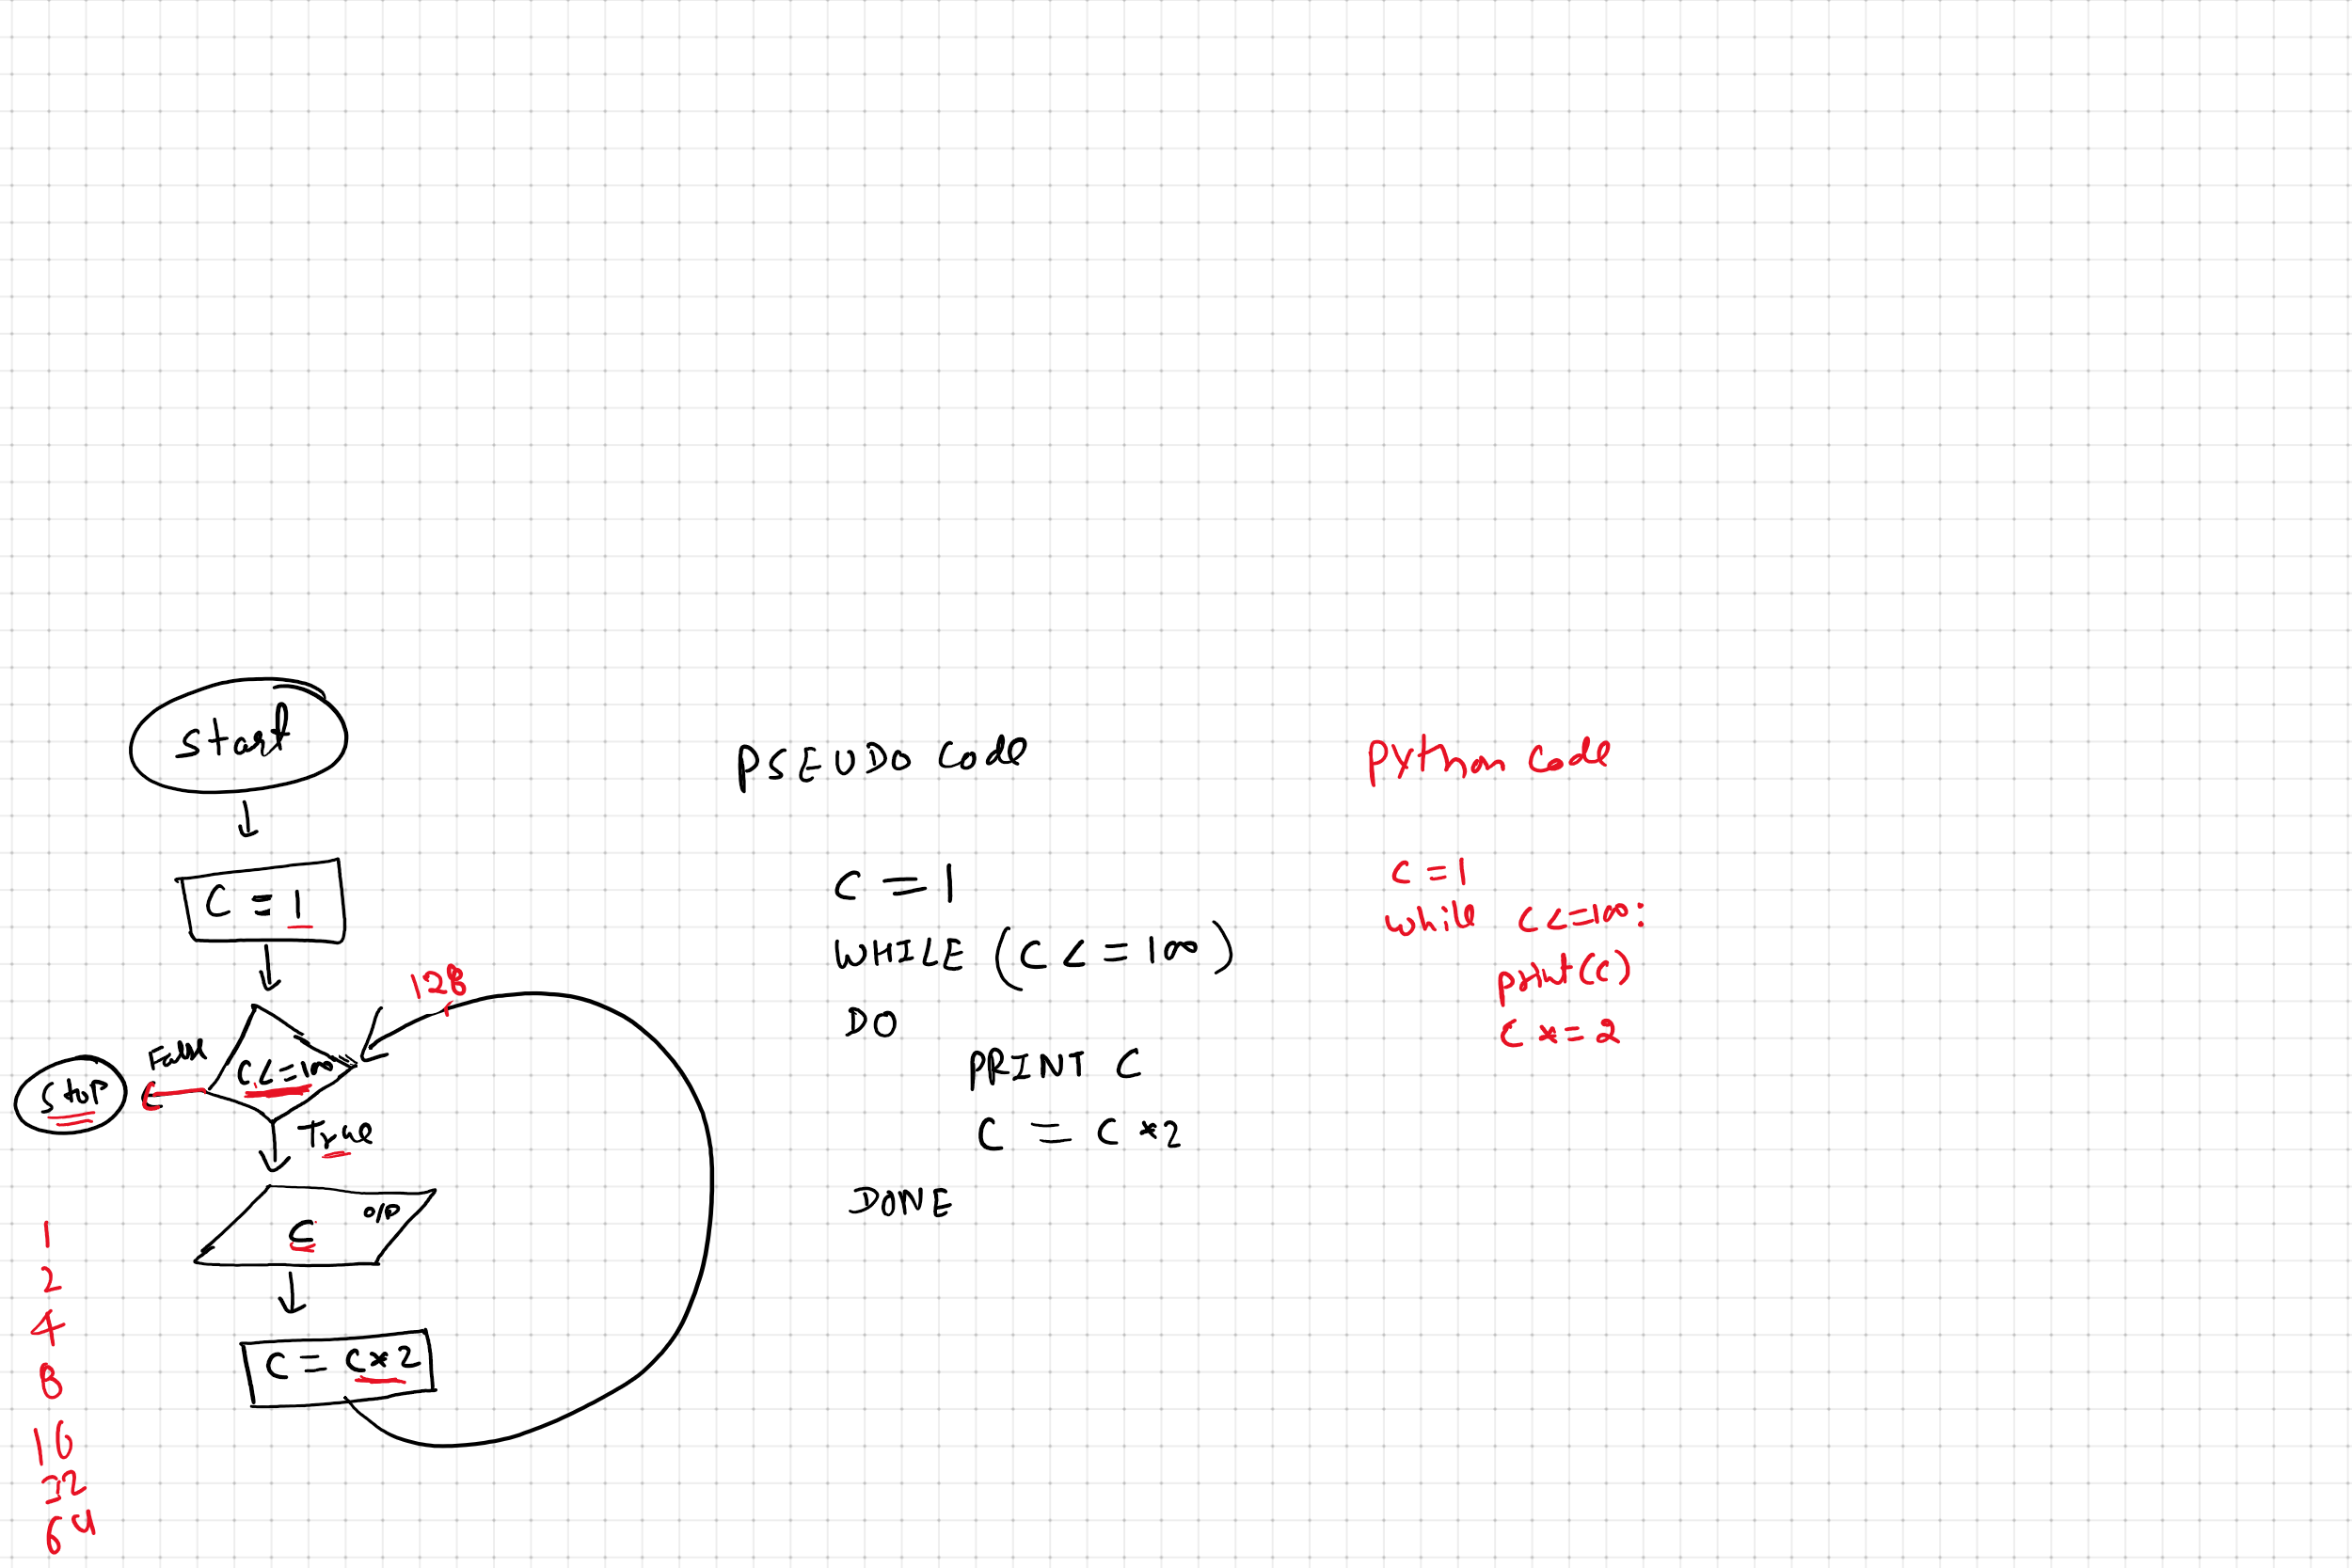 start
C = 1
128
False
C <= 100
stop
True
o/p
C
C = C*2
1
2
4
8
16
32
64
PSEUDO Code
C = 1
WHILE (C <= 100)
DO
PRINT C
C = C*2
DONE
Python Code
C = 1
while C <= 100:
print(C)
C *= 2